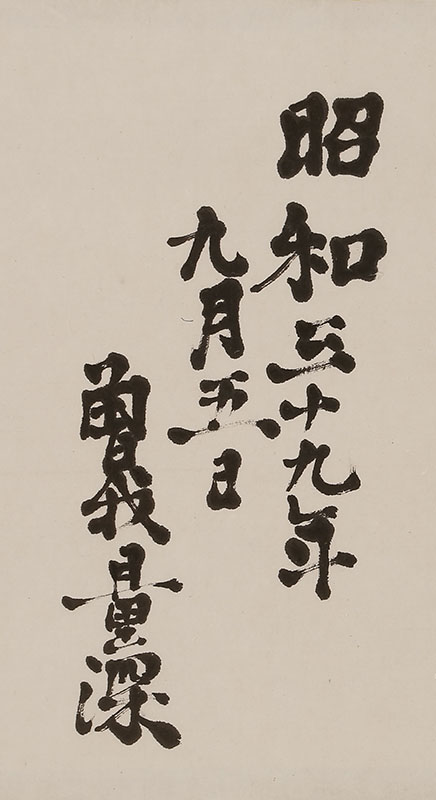 昭和三十九年
九月五日
曽我量深